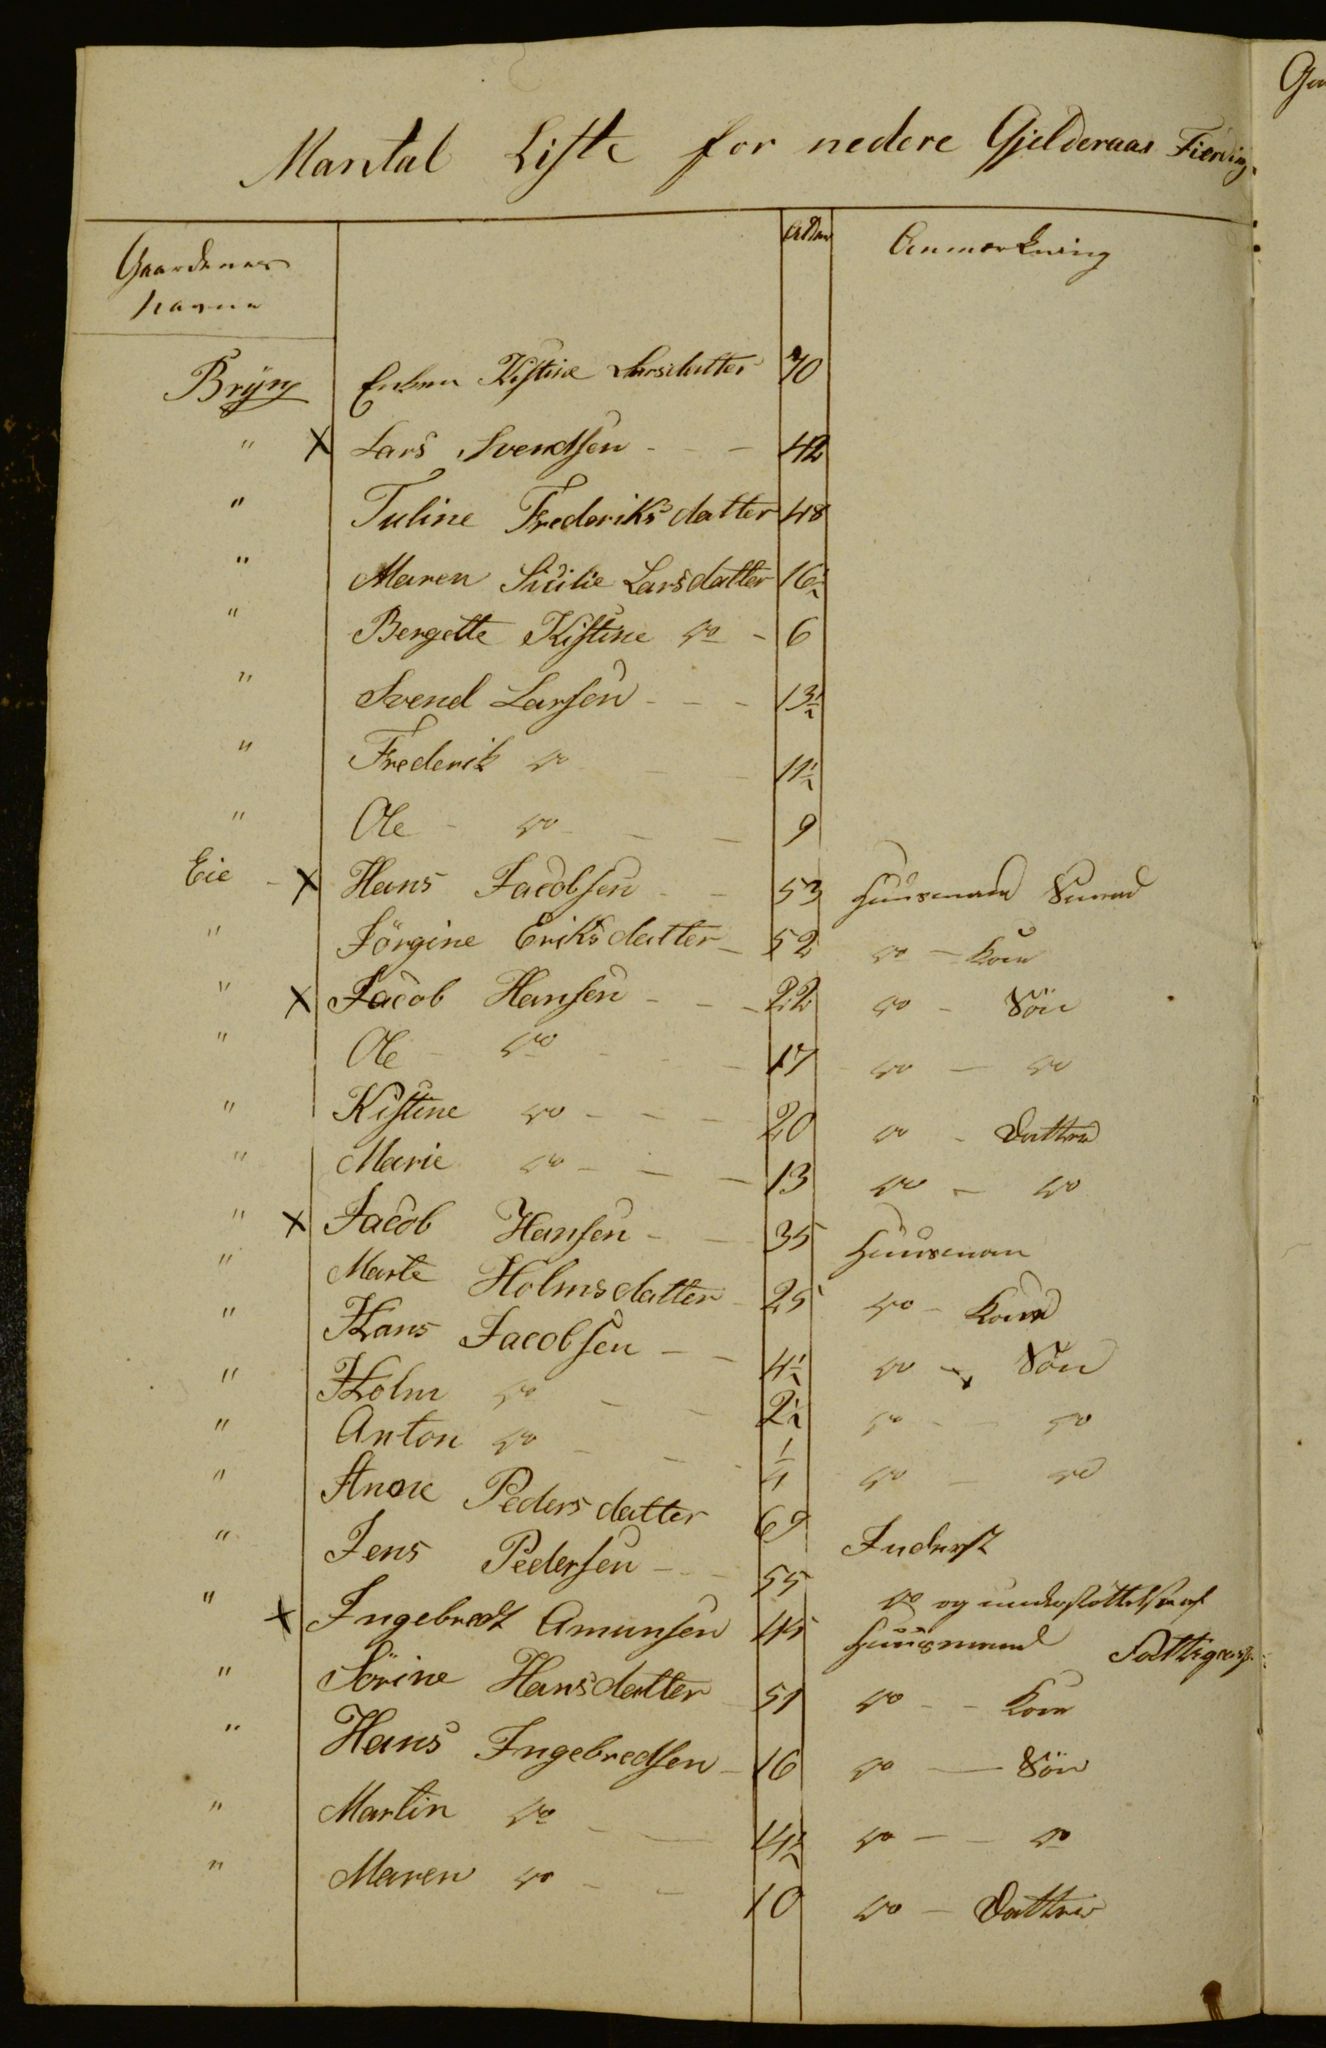 Mantal Liste for nedere Gjelderaas Fierding.
Gaardenes Alder Anmærkning
Navne
Bryn Enken Kistine Larsdatter 70
" X Lars Svendsen - - 42
" Tuline Frederiksdatter 48
" Maren Sicilie Larsdatter 16½
" Bergette Kistine do - 6
" Svend Larsen - - - 13½
" Frederik do - - 11½
" Ole - do - - - 9
Eie - X Hans Jacobsen - - 53 Huusmand
" Jörgine Eriksdatter - 52 do - Kone
" X Jacob Hansen - - - 22 do - Sön
" Ole - do - - - 17 do - do
" Kistine do - - - 20 do - Datter
" Marie do - - - 13 do - do
" X Jacob Hansen - - 35 Huusman
" Marte Holmsdatter - 25 do - Kone
" Hans Jacobsen - - 4½ do - Sön
" Holm do - - 2½ do - - do
" Anton do - - ¼ do - do
" Anne Pedersdatter 69 Inderst
" Jens Pedersen - - - 55 do og understöttelse af
" X Ingebredt Amunsen 45 Huusmand Fattigcasse
" Sörine Hansdatter 51 do - - Kone
" Hans Ingebredsen - 16 do - Sön
" Martin do - - 14½ do - - do
" Maren do - - 10 do - Datter